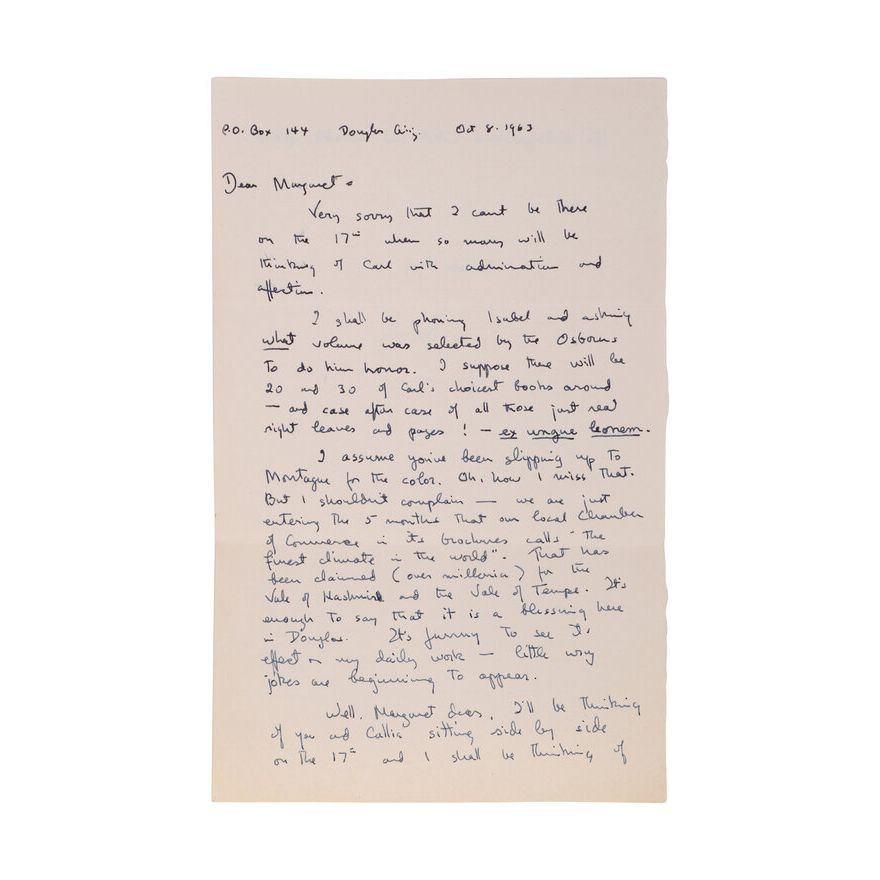 P.O. Box 144 Douglas Ariz. Oct 8. 1963
Dear Margaret =
Very sorry that I can't be there
on the 17th when so many will be
thinking of Carl with admiration and
affection.
I shall be phoning Isabel and asking
what volume was selected by the Osborns
to do him honor. I suppose there will be
20 and 30 of Carl's choicest books around
— and case after case of all those just real
right leaves and pages ! — ex ungue leonem.
I assume you've been slipping up to
Montague for the color. Oh, how I miss that.
But I shouldn't complain — we are just
entering the 5 months that our local Chamber
of Commerce in its brochures calls "the
finest climate in the world". That has
been claimed (over millenia) for the
Vale of Kashmir and the Vale of Tempe. It's
enough to say that it is a blessing here
in Douglas. It's funny to see its
effect on my daily work — little wry
jokes are beginning to appear.
Well, Margaret dear, I'll be thinking
of you and Callia sitting side by side
on the 17th and I shall be thinking of